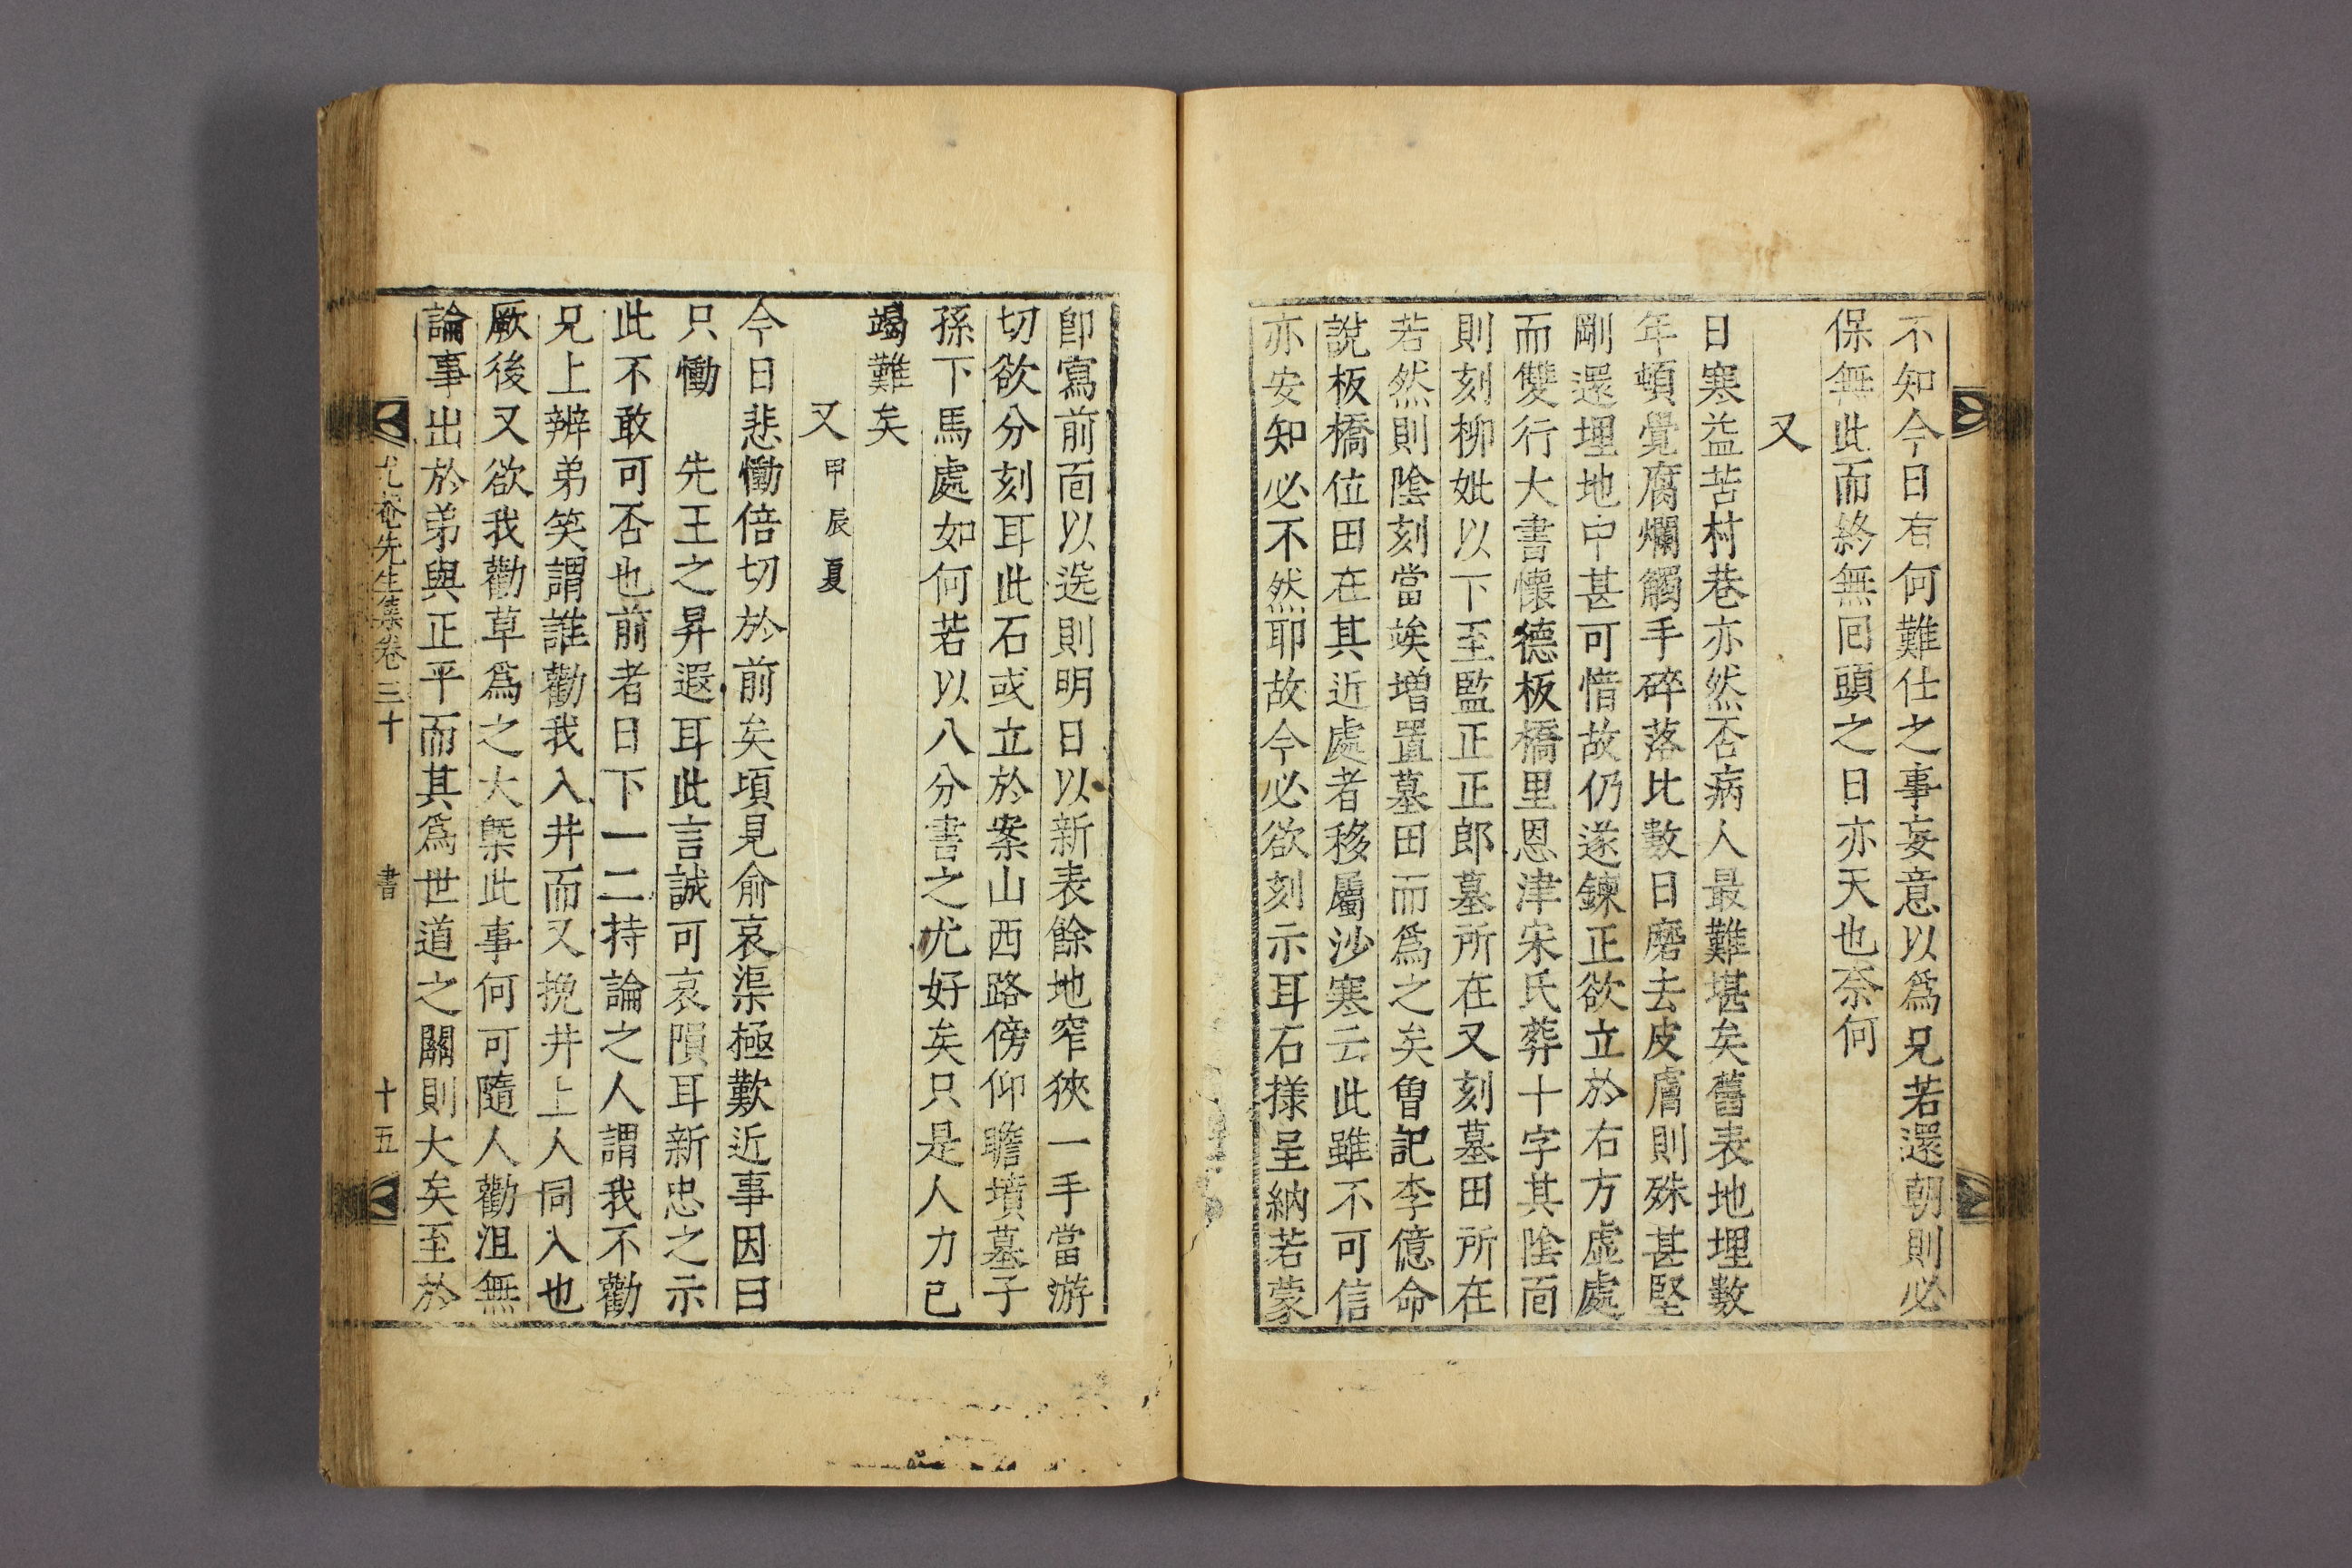 不知今日有何難仕之事妄意以爲兄若還朝則必
保無此而終無回頭之日亦天也奈何
又
日寒益苦村巷亦然否病人最難堪矣舊表地埋數
年頓覺腐爛觸手碎落比數日磨去皮膚則殊甚堅
剛還埋地中甚可惜故仍遂鍊正欲立於右方虛處
而雙行大書懷德板橋里恩津宋氏葬十字其陰面
則刻柳妣以下至監正正郎墓所在又刻墓田所在
若然則陰刻當竢增置墓田而爲之矣曾記李億命
說板橋位田在其近處者移屬沙寒云此雖不可信
亦安知必不然耶故今必欲刻示耳石樣呈納若蒙
卽寫前面以送則明日以新表餘地窄狹一手當游
切欲分刻耳此石或立於案山西路傍仰瞻墳墓子
孫下馬處如何若以八分書之尤好矣只是人力已
竭難矣
又 甲辰夏
今日悲慟倍切於前矣頃見俞哀渠極歎近事因曰
只慟 先王之昇遐耳此言誠可哀隕耳新忠之示
此不敢可否也前者日下一二持論之人謂我不勸
兄上辨弟笑謂誰勸我入井而又挽井上人同入也
厥後又欲我勸草爲之大槩此事何可隨人勸沮無
論事出於弟與正平而其爲世道之關則大矣至於
尤菴先生集卷三十 書 十五